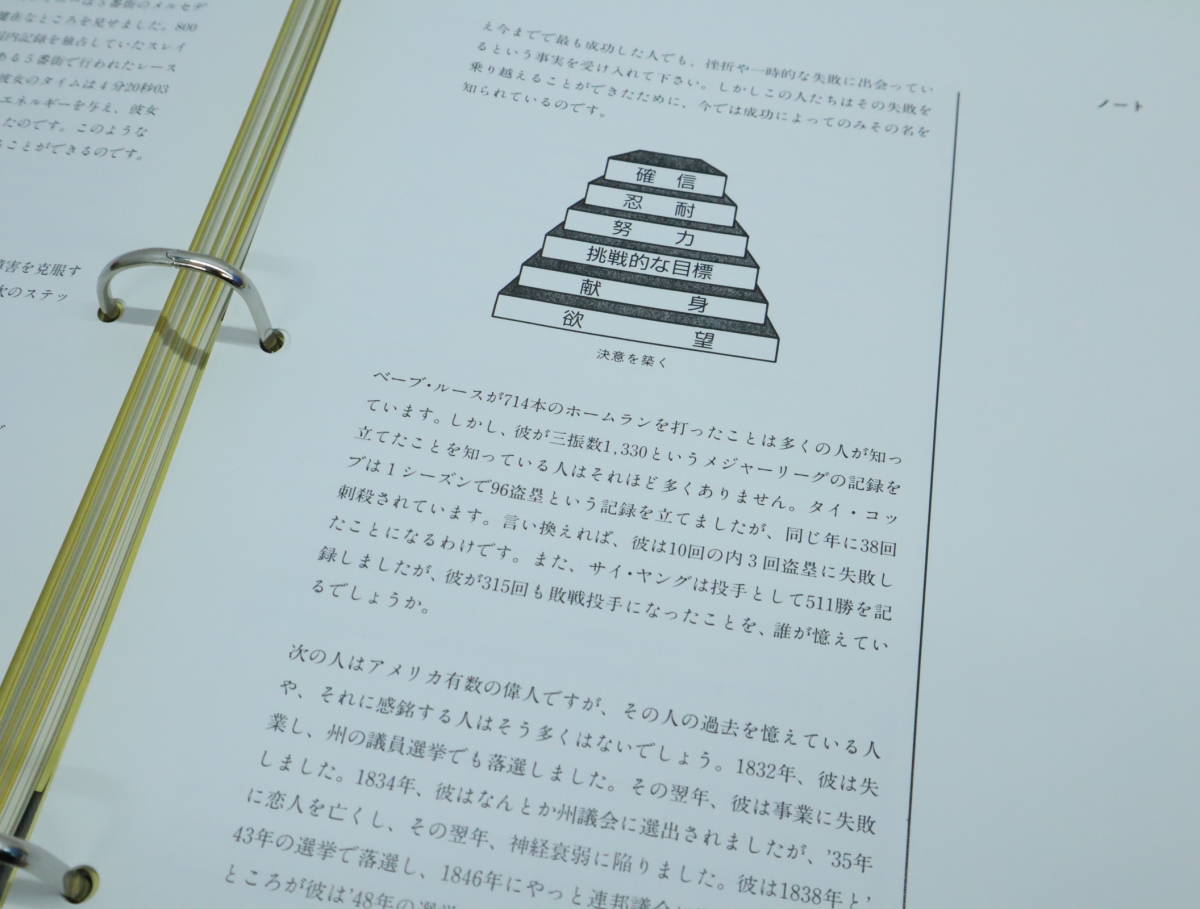 5番街のメルセデ
健在なところを見せました。800
国内記録を独占していたスレイ
ある5番街で行われたレース
彼女のタイムは4分20秒03
エネルギーを与え、彼女
たのです。このような
ることができるのです。
障害を克服す
次のステッ
え今までで最も成功した人でも、挫折や一時的な失敗に出会ってい
るという事実を受け入れて下さい。しかしこの人たちはその失敗を
乗り越えることができたために、今では成功によってのみその名を
知られているのです。
確信
忍耐
努力
挑戦的な目標
献身
欲望
決意を築く
ベーブ・ルースが714本のホームランを打ったことは多くの人が知っ
ています。しかし、彼が三振数1,330というメジャーリーグの記録を
立てたことを知っている人はそれほど多くありません。タイ・コッ
ブは1シーズンで96盗塁という記録を立てましたが、同じ年に38回
刺殺されています。言い換えれば、彼は10回の内3回盗塁に失敗し
たことになるわけです。また、サイ・ヤングは投手として511勝を記
録しましたが、彼が315回も敗戦投手になったことを、誰が憶えてい
るでしょうか。
次の人はアメリカ有数の偉人ですが、その人の過去を憶えている人
や、それに感銘する人はそう多くはないでしょう。1832年、彼は失
業し、州の議員選挙でも落選しました。その翌年、彼は事業に失敗
しました。1834年、彼はなんとか州議会に選出されましたが、'35年
に恋人を亡くし、その翌年、神経衰弱に陥りました。彼は1838年と'
43年の選挙で落選し、1846年にやっと連邦議会に
ところが彼は'48年の選挙
ノート